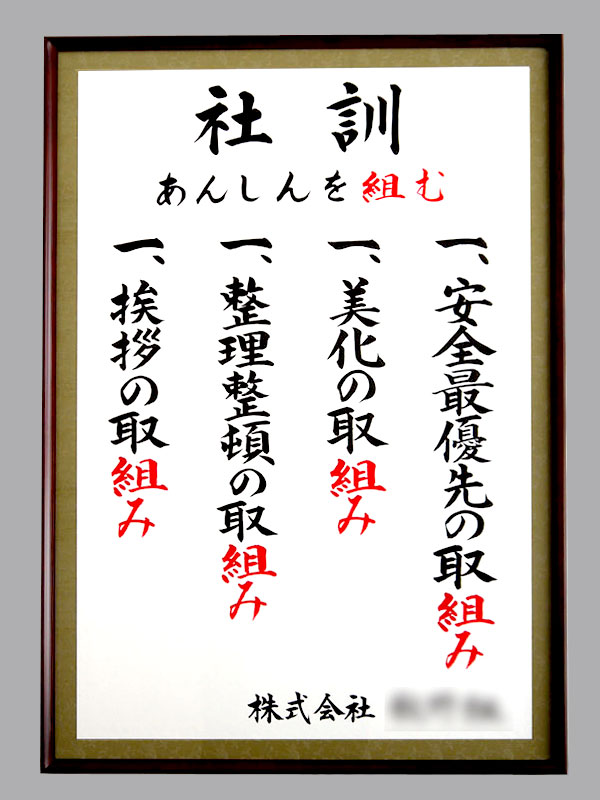 社訓
あんしんを組む
一、安全最優先の取組み
一、美化の取組み
一、整理整頓の取組み
一、挨拶の取組み
株式会社